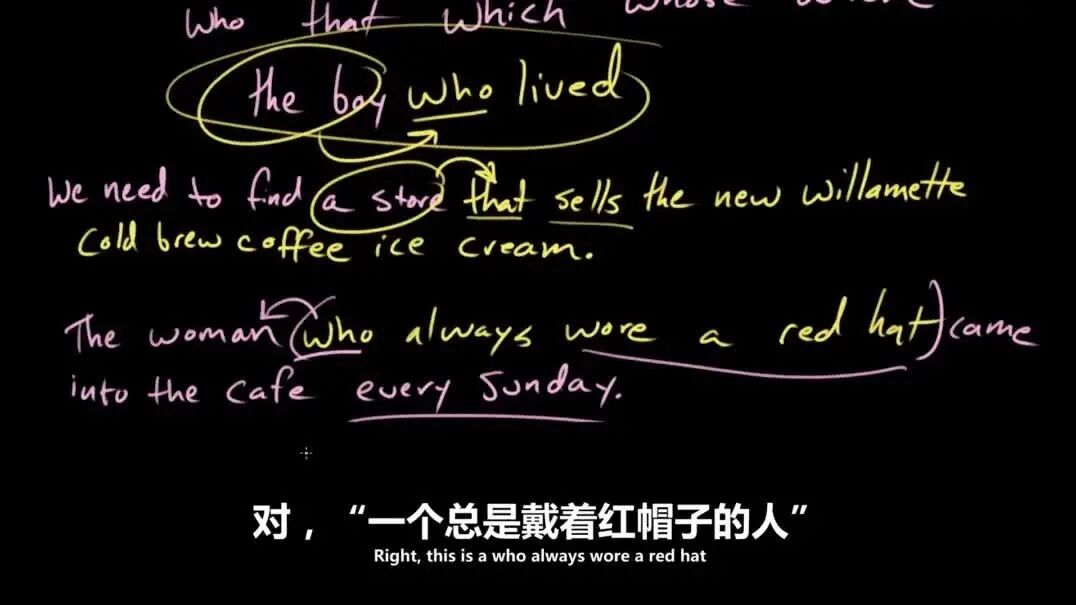 who that which whose where
the boy who lived
We need to find a store that sells the new willamette
cold brew coffee ice cream.
The woman (who always wore a red hat) came
into the cafe every Sunday.
对，“一个总是戴着红帽子的人”
Right, this is a who always wore a red hat